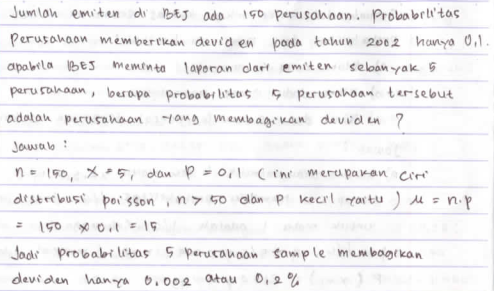 Jumlah emiten di BEJ ada 150 perusahaan. Probabilitas
Perusahaan memberikan deviden pada tahun 2002 hanya 0,1.
apabila BEJ meminta laporan dari emiten sebanyak 5
perusahaan, berapa probabilitas 5 perusahaan tersebut
adalah perusahaan yang membagikan deviden ?
Jawab :
n = 150, x = 5, dan P = 0,1 ( ini merupakan ciri
distribusi poisson, n > 50 dan P kecil yaitu ) μ = n.p
= 150 x 0,1 = 15
Jadi probabilitas 5 perusahaan sample membagikan
deviden hanya 0,002 atau 0,2%